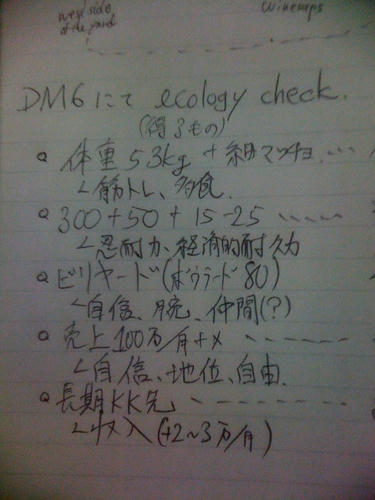 west side
of the yard
Winecups
DM6にて ecology check.
(得るもの)
体重53kg + 細マッチョ
筋トレ、多食
300+50+15-25
忍耐力、経済的耐久力
ビリヤード(ボウラード80)
自信、腕、仲間(?)
売上100万/月+×
自信、地位、自由.
長期KK先
収入(+2~3万/月)